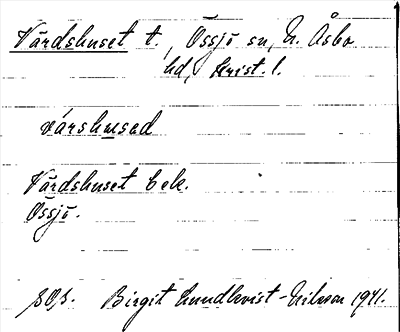 Värdshuset t., Össjö sn, N. Åsbo
hd, Krist. l.
värshused
Värdshuset bek.
Össjö.
Birgit Lundkvist-Nilsson 1941.